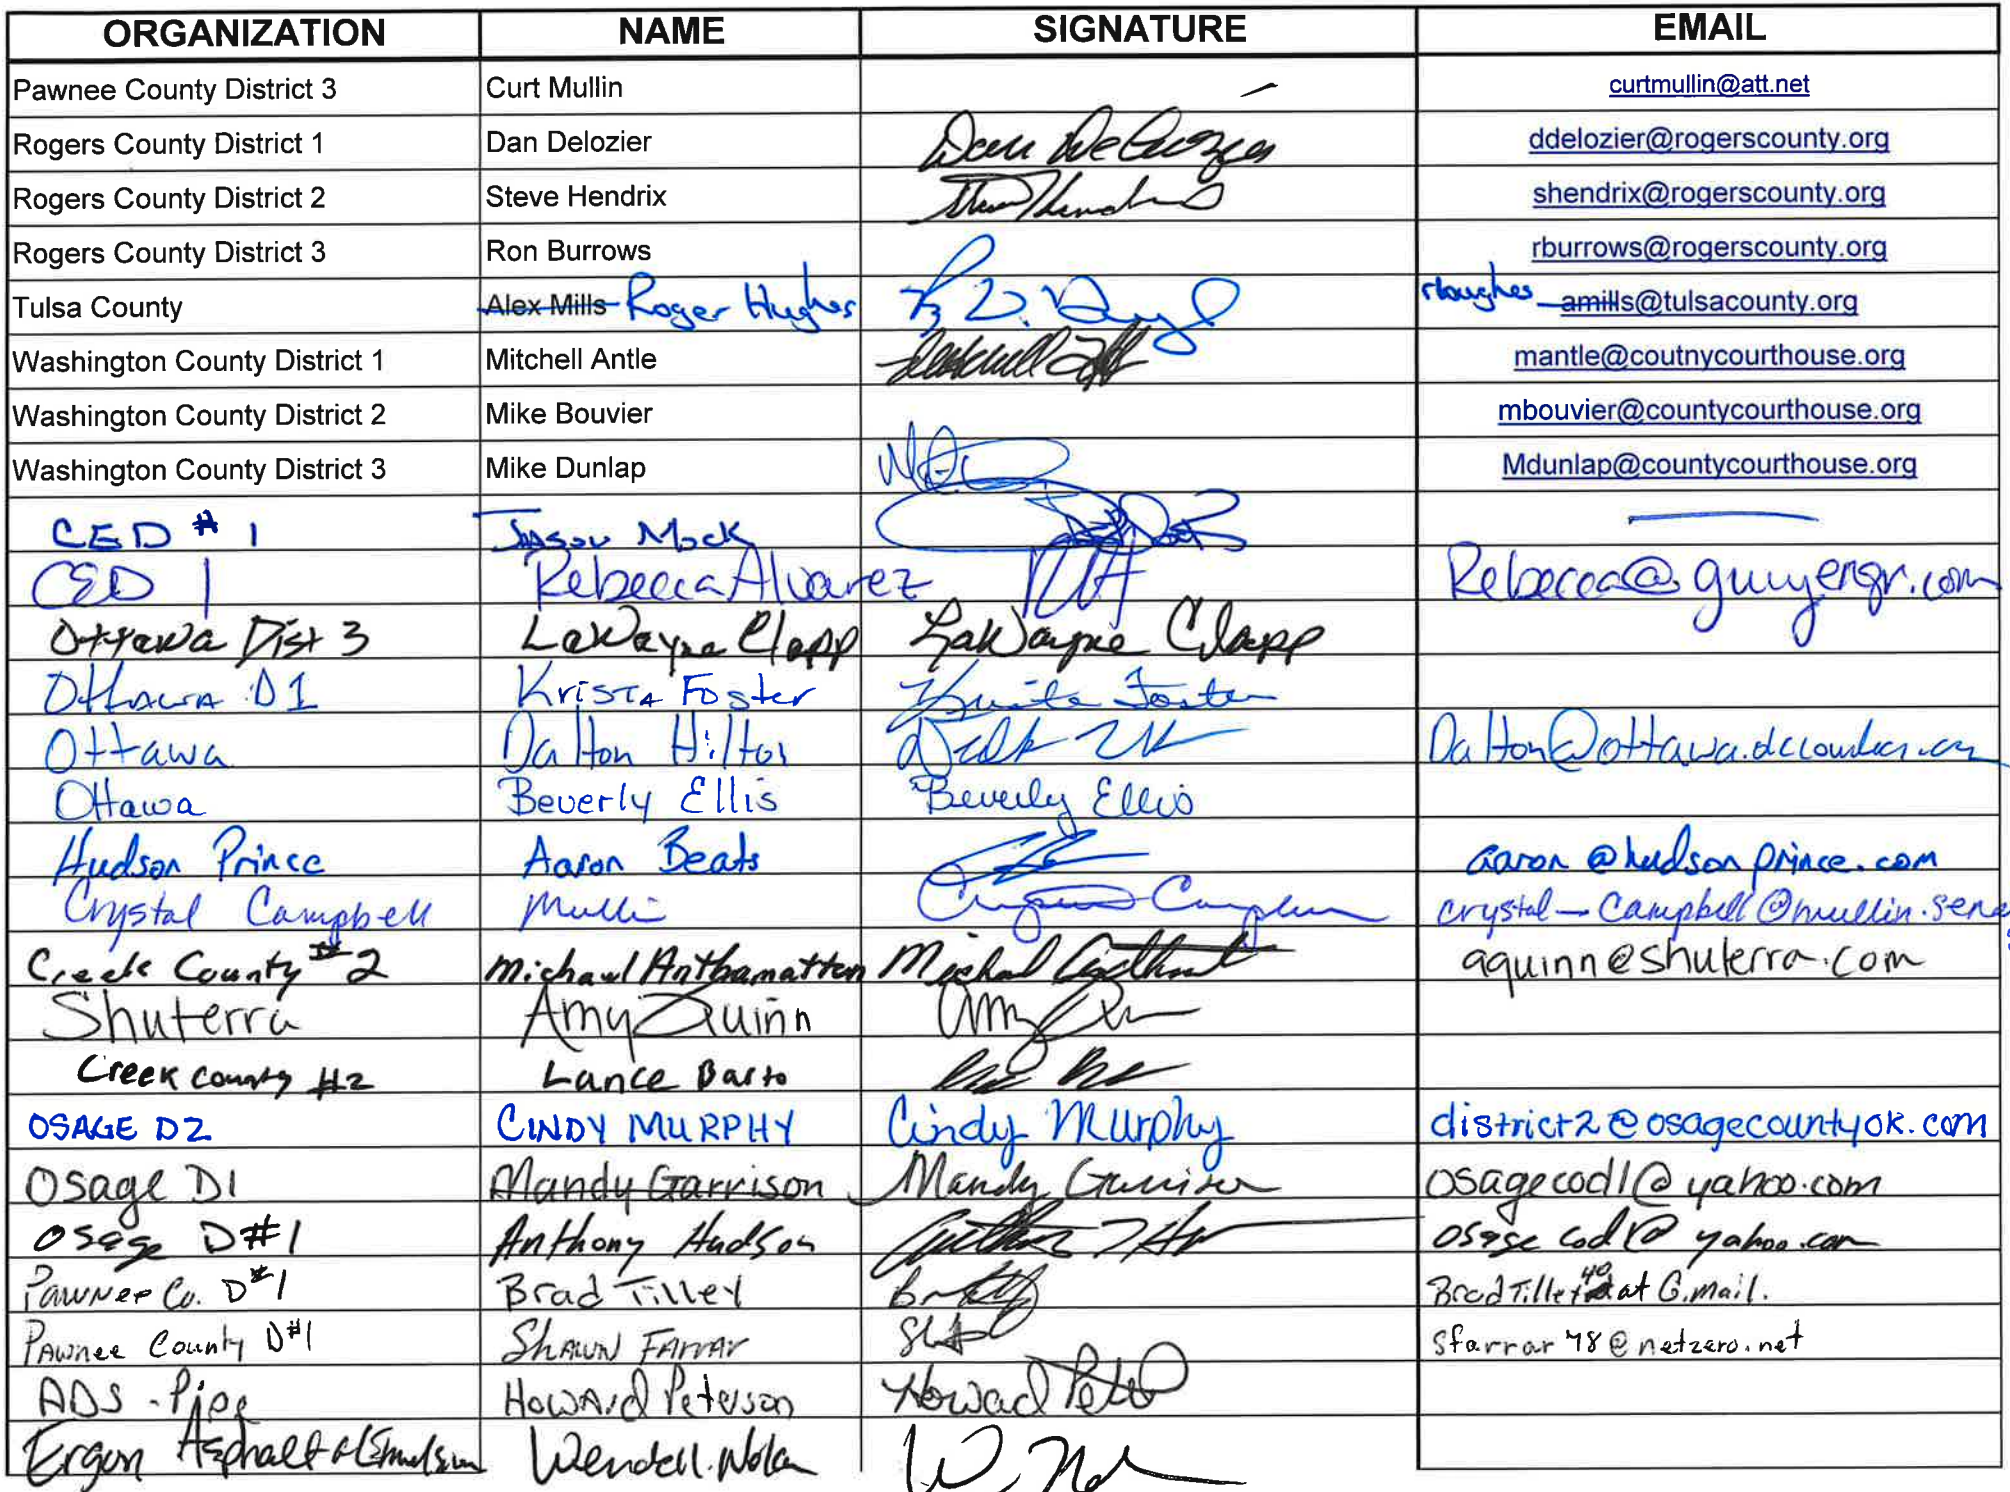 ORGANIZATION NAME SIGNATURE EMAIL
Pawnee County District 3 Curt Mullin curtmullin@att.net
Rogers County District 1 Dan Delozier Dan DeLozier ddelozier@rogerscounty.org
Rogers County District 2 Steve Hendrix Steve Hendrix shendrix@rogerscounty.org
Rogers County District 3 Ron Burrows rburrows@rogerscounty.org
Tulsa County Alex Mills Roger Hughes rhughes amills@tulsacounty.org
Washington County District 1 Mitchell Antle mantle@coutnycourthouse.org
Washington County District 2 Mike Bouvier mbouvier@countycourthouse.org
Washington County District 3 Mike Dunlap Mdunlap@countycourthouse.org
CED #1 Jason Mock
CED 1 Rebecca Alvarez Rebecca@guyengr.com
Ottawa Dist 3 LaWayne Clapp LaWayne Clapp
Ottawa D1 Krista Foster Krista Foster
Ottawa Dalton Hilton
Ottawa Beverly Ellis Beverly Ellis
Hudson Prince Aaron Beats aaron@hudsonprince.com
Crystal Campbell Mullin Crystal Campbell
Creek County #2 Michael Anthamatten Michael aquinn@shuterra.com
Shuterra Amy Quinn Amy Quinn
Creek County #2 Lance Basto
OSAGE D2 CINDY MURPHY Cindy Murphy district2@osagecountyok.com
Osage D1 Mandy Garrison Mandy Garrison osagecod1@yahoo.com
Osage D#1 Anthony Hudson osagecod1@yahoo.com
Pawnee Co. D#1 Brad Tilley at G.mail.
Pawnee County D#1 Shawn Farrar sfarrar78@netzero.net
ADS-Pipe Howard Peterson Howard
Ergon Asphalt & Emulsion Wendell Nolan W. Nolan